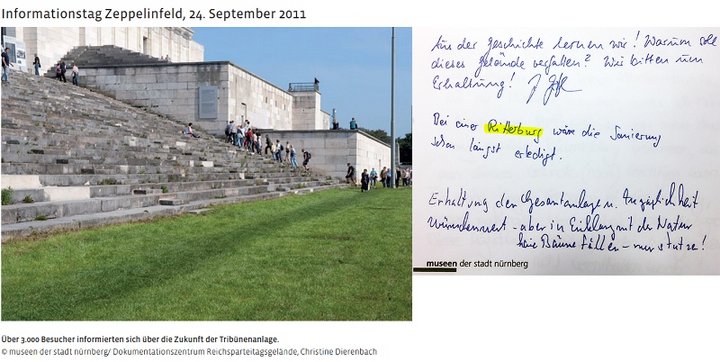 Informationstag Zeppelinfeld, 24. September 2011
Aus der Geschichte lernen wir! Warum soll
dieses Gelände verfallen? Wir bitten um
Erhaltung!
Bei einer Ritterburg wäre die Sanierung
schon längst erledigt.
Erhaltung der Gesamtanlagen. Zugänglichkeit
wünschenswert - aber in Einklang mit der Natur
keine Bäume fällen - nur stutzen!
museen der stadt nürnberg
Über 3.000 Besucher informierten sich über die Zukunft der Tribünenanlage.
© museen der stadt nürnberg/ Dokumentationszentrum Reichsparteitagsgelände, Christine Dierenbach